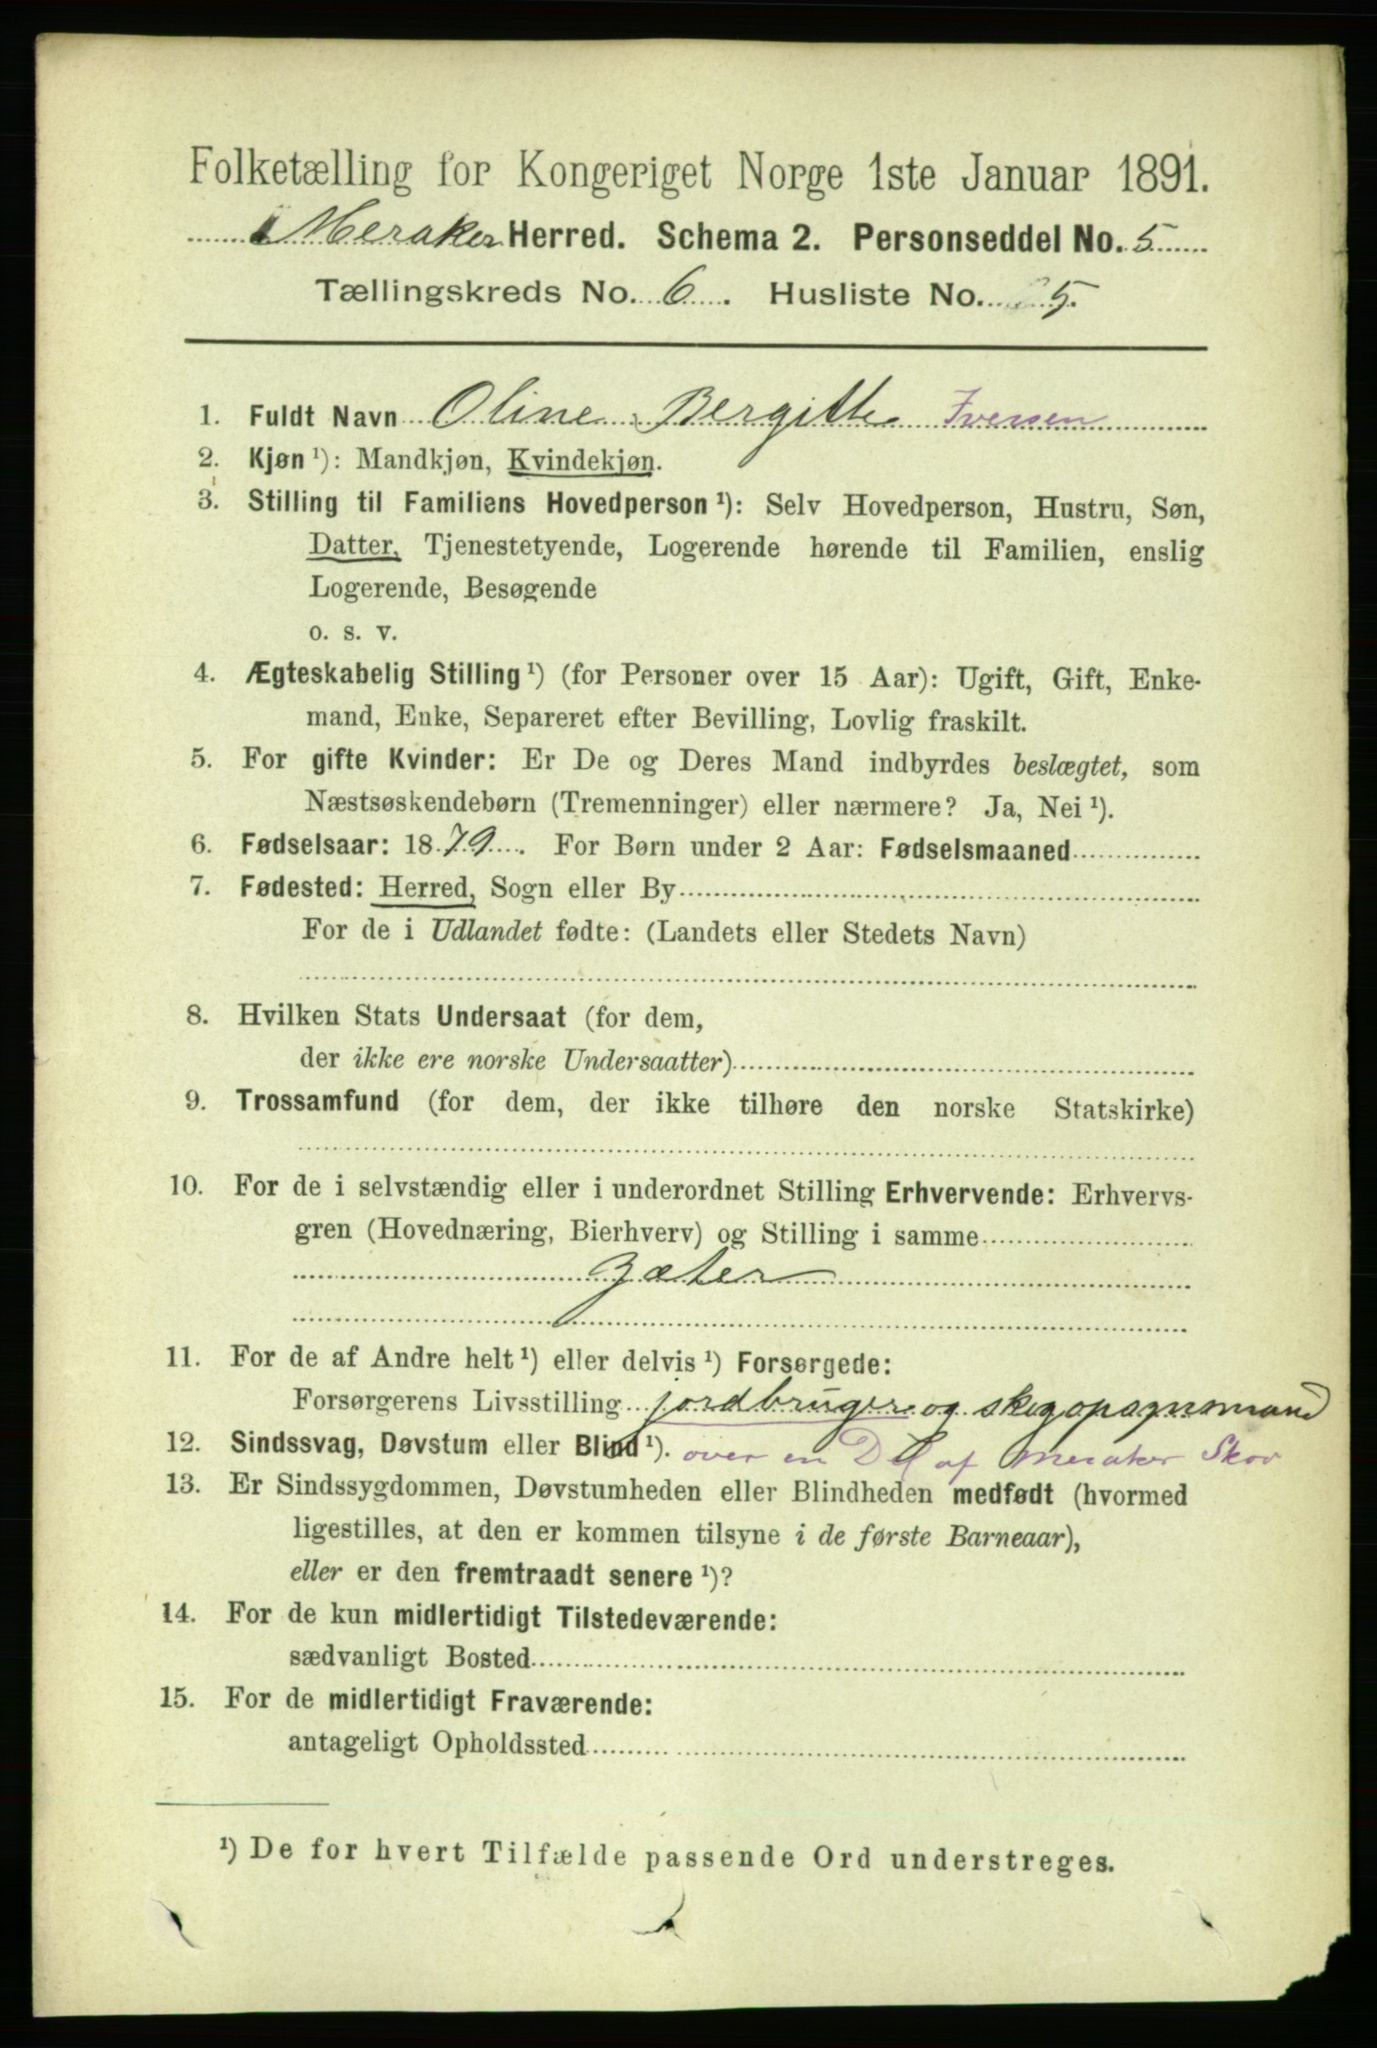 Folketælling for Kongeriget Norge 1ste Januar 1891.
Meraker Herred. Schema 2. Personseddel No. 5
Tællingskreds No. 6. Husliste No. 5.
1. Fuldt Navn Oline Bergitte Iversen
2. Kjøn ¹): Mandkjøn, Kvindekjøn.
3. Stilling til Familiens Hovedperson ¹): Selv Hovedperson, Hustru, Søn,
Datter, Tjenestetyende, Logerende hørende til Familien, enslig
Logerende, Besøgende
o. s. v.
4. Ægteskabelig Stilling ¹) (for Personer over 15 Aar): Ugift, Gift, Enke-
mand, Enke, Separeret efter Bevilling, Lovlig fraskilt.
5. For gifte Kvinder: Er De og Deres Mand indbyrdes beslægtet, som
Næstsøskendebørn (Tremenninger) eller nærmere? Ja, Nei ¹).
6. Fødselsaar: 1879. For Børn under 2 Aar: Fødselsmaaned
7. Fødested: Herred, Sogn eller By
For de i Udlandet fødte: (Landets eller Stedets Navn)
8. Hvilken Stats Undersaat (for dem,
der ikke ere norske Undersaatter)
9. Trossamfund (for dem, der ikke tilhøre den norske Statskirke)
10. For de i selvstændig eller i underordnet Stilling Erhvervende: Erhvervs-
gren (Hovednæring, Bierhverv) og Stilling i samme
Jæter
11. For de af Andre helt ¹) eller delvis ¹) Forsørgede:
Forsørgerens Livsstilling jordbruger og skogopsynsmand
12. Sindssvag, Døvstum eller Blind ¹). over en Del af Meraker Skov
13. Er Sindssygdommen, Døvstumheden eller Blindheden medfødt (hvormed
ligestilles, at den er kommen tilsyne i de første Barneaar),
eller er den fremtraadt senere ¹)?
14. For de kun midlertidigt Tilstedeværende:
sædvanligt Bosted
15. For de midlertidigt Fraværende:
antageligt Opholdssted
¹) De for hvert Tilfælde passende Ord understreges.